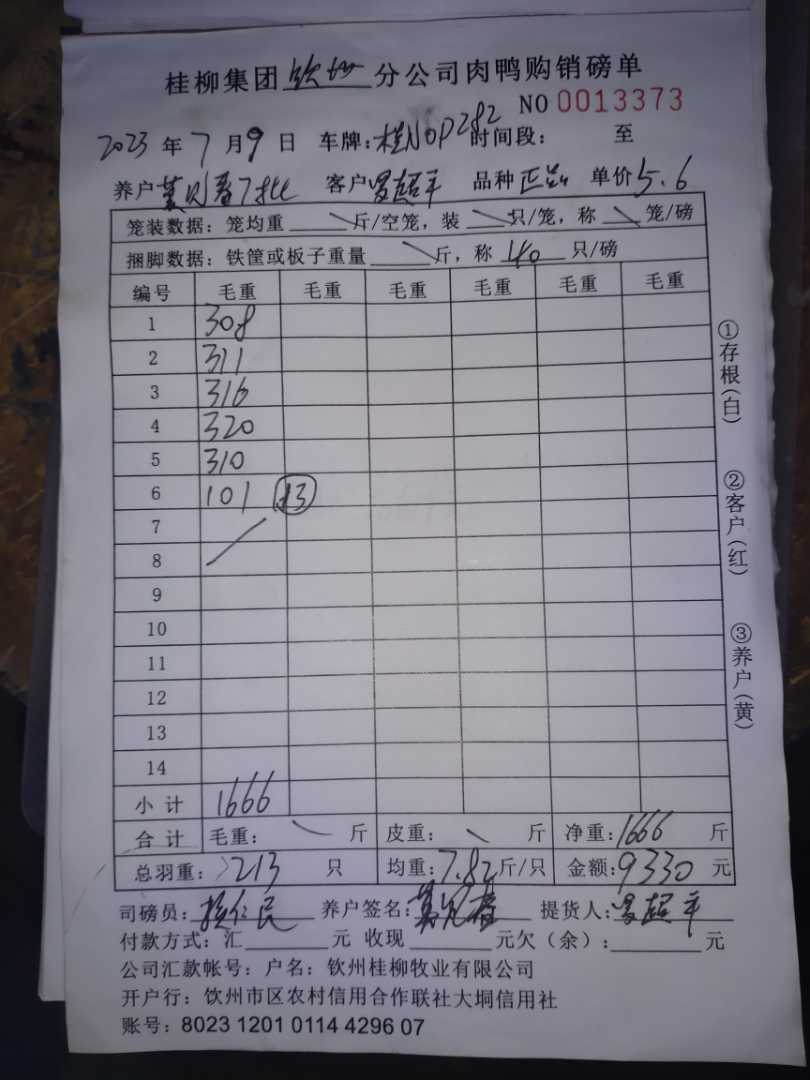 桂柳集团 钦州 分公司肉鸭购销磅单
NO 0013373
2023 年 7 月 9 日 车牌:桂N0P282 时间段: 至
养户 客户 罗超平 品种 正品 单价 5.6
笼装数据:笼均重 斤/空笼,装 只/笼,称 笼/磅
捆脚数据:铁筐或板子重量 斤,称 40 只/磅
编号 毛重 毛重 毛重 毛重 毛重 毛重
1 308
2 311
3 316
4 320
5 310
6 101 13
7
8
9
10
11
12
13
14
小计 1666
合计 毛重: 斤 皮重: 斤 净重:1666 斤
总羽重: 213 只 均重:7.82 斤/只 金额:9330 元
司磅员: 养户签名: 提货人:罗超平
付款方式:汇 元 收现 元欠(余): 元
公司汇款帐号:户名:钦州桂柳牧业有限公司
开户行:饮州市区农村信用合作联社大垌信用社
账号:8023 1201 0114 4296 07
①存根(白)
②客户(红)
③养户(黄)